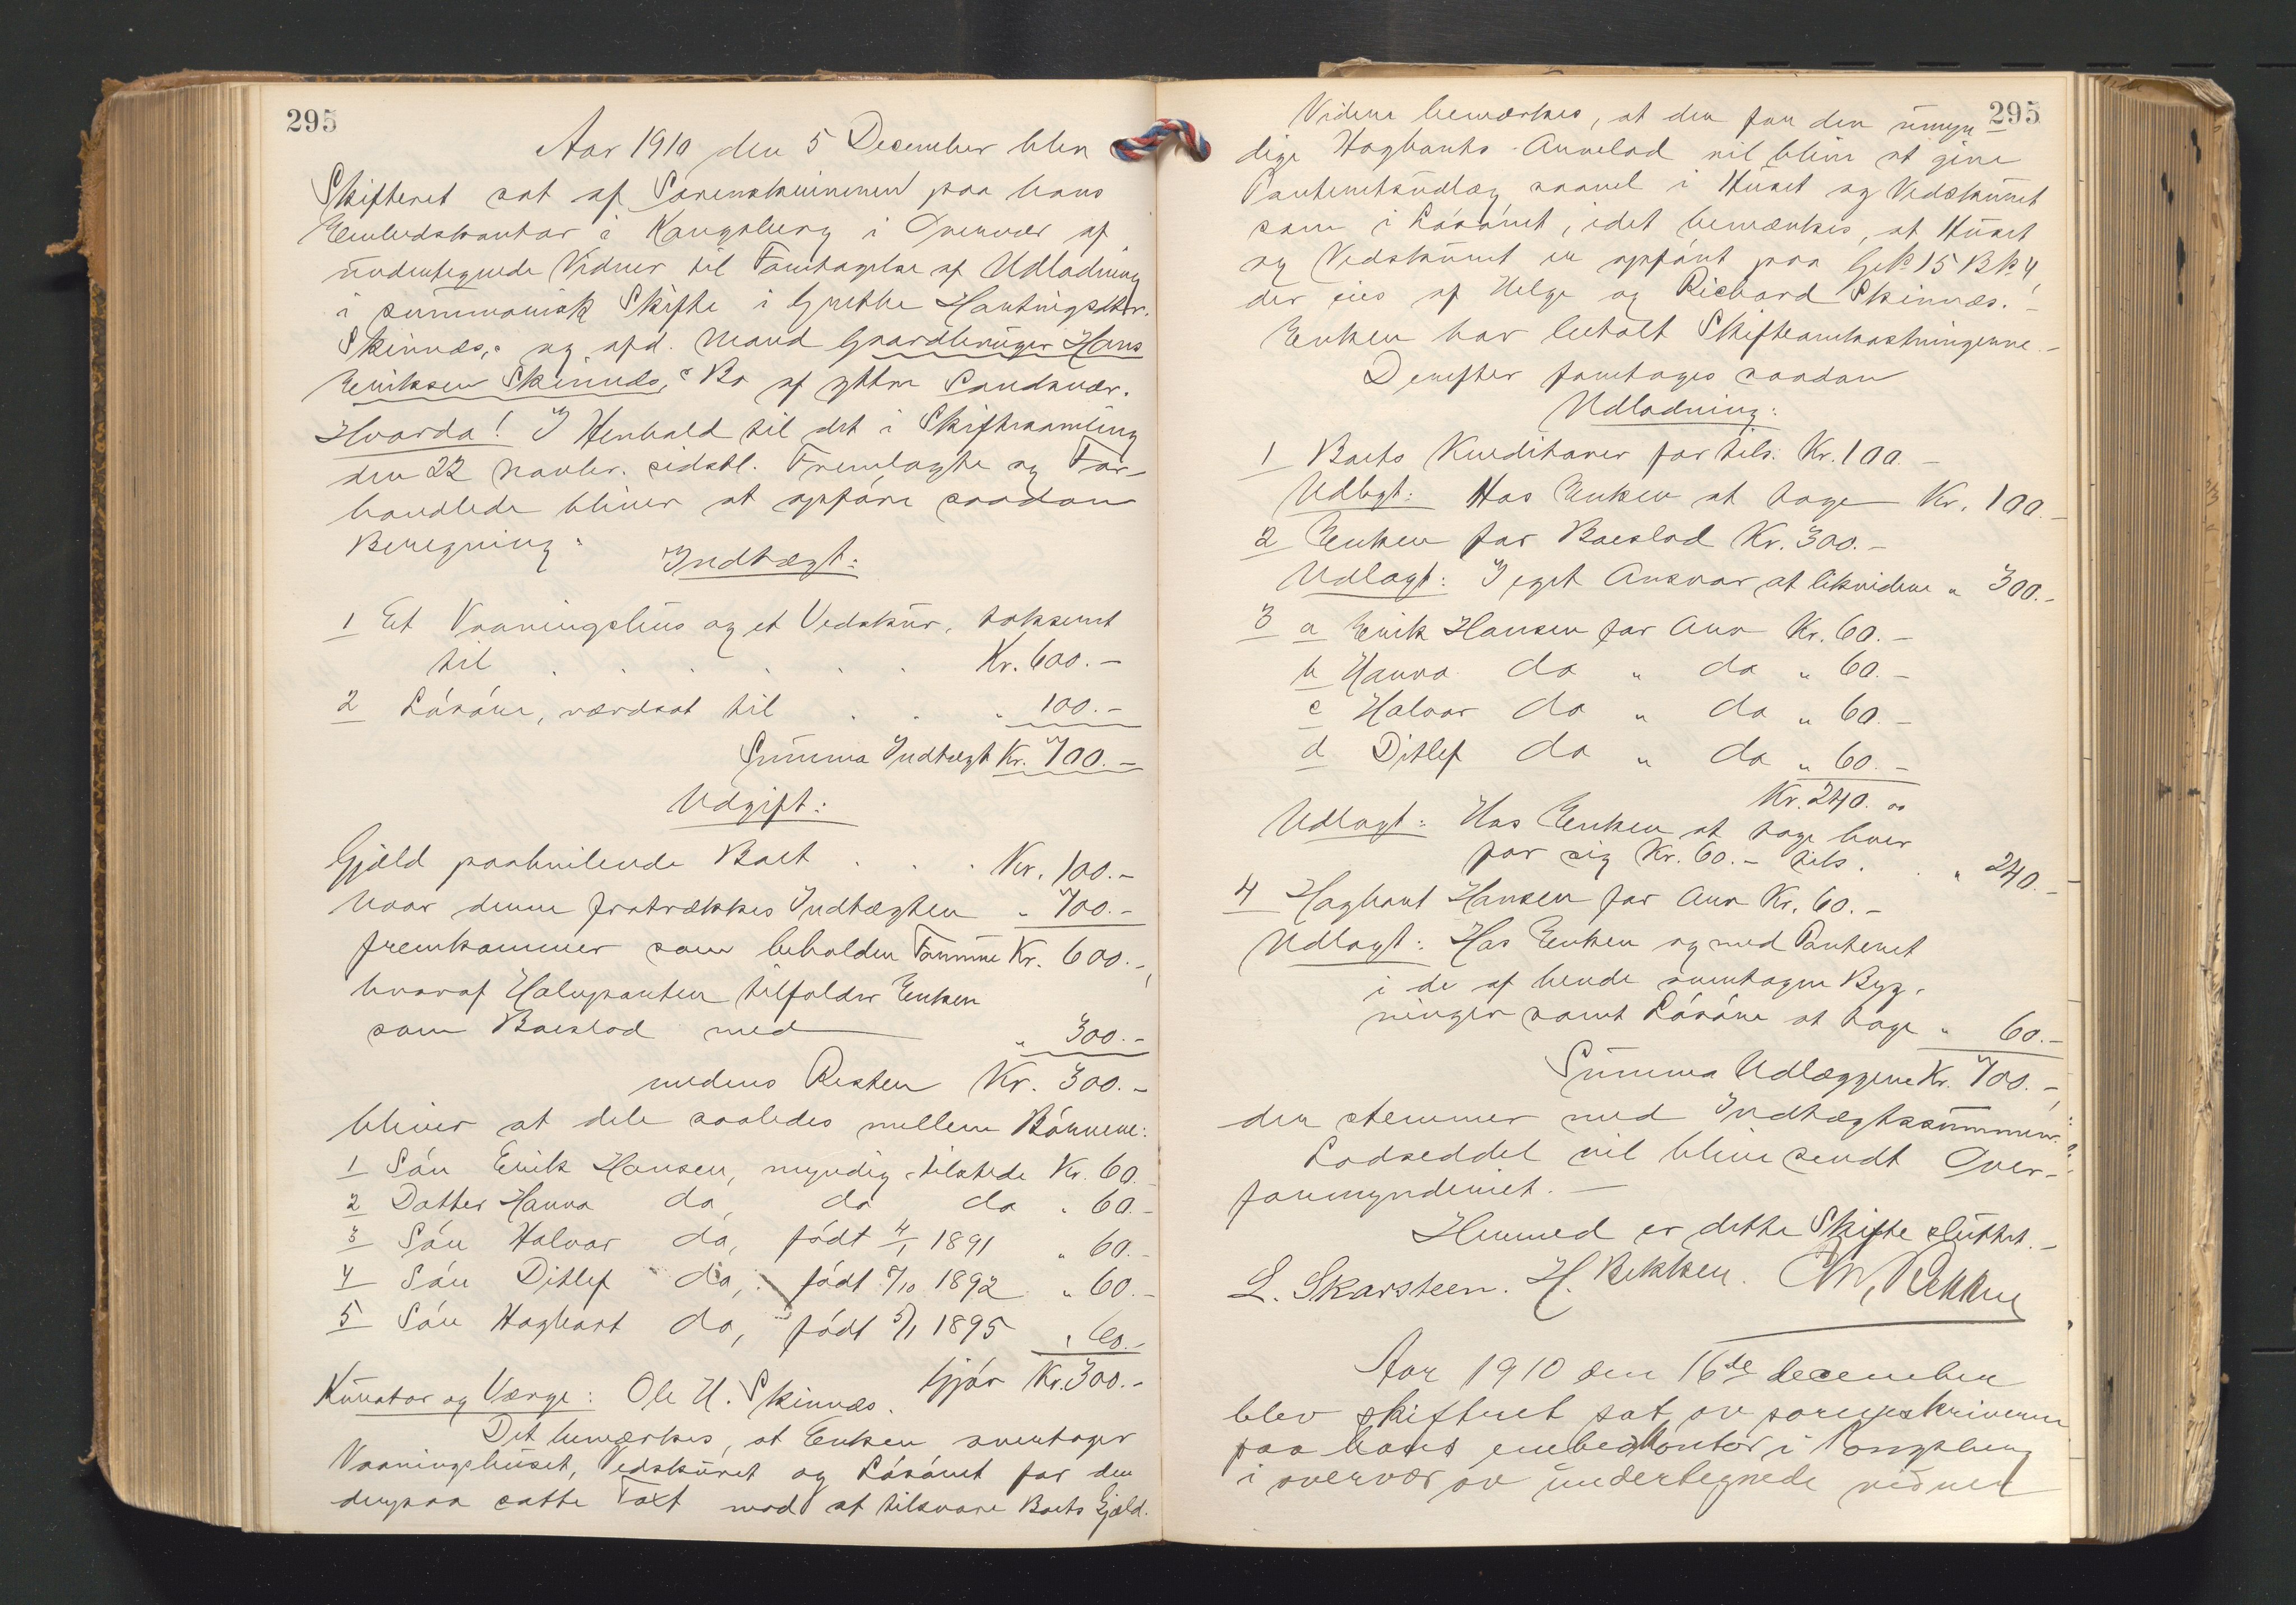 295
Aar 1910 den 5 December blev
Skifteret sat af Sorenskriveren paa hans
Embedskontor i Kongsberg i Overvær af
undertegnede Vidner til Foretagelse af Udlodning
i summarisk Skifte i Grethe Hartvigsdtr.
Skinnæs, og afd. Mand Gaardbruger Hans
Eriksen Skinnæs, Bo af yttre Sandsvær.
Hvorda! I Henhold til det i Skiftesamling
den 22 Novbr. sidstl. Fremlagte og For-
handlede bliver at opføre saadan
Beregning:
Indtægt:
1 Et Vaaningshus og et Vedskur, takseret
til . . . . . . Kr. 600.-
2 Løsøre, værdsat til . . " 100.-
Summa Indtægt Kr. 700.-
Udgift:
Gjæld paahvilende Boet . . . Kr. 100.-
Naar denne fratrækkes Indtægten " 700.-
fremkommer som beholden Formue Kr. 600.-,
hvoraf Halvparten tilfalder Enken
som Boeslod med " 300.-
medens Resten Kr. 300.-
bliver at dele saaledes mellem Børnene:
1 Søn Erik Hansen, myndig tilstede Kr. 60.-
2 Datter Hanna do, do do " 60.-
3 Søn Halvor do, født 4/1 1891 " 60.-
4 Søn Ditlef do, født 7/10 1892 " 60.-
5 Søn Hagbart do, født 5/1 1895 " 60.-
Gjør Kr. 300.-
Kurator og Værge: Ole H. Skinnæs.
Det bemærkes, at Enken overtager
Vaaningshuset, Vedskuret og Løsøret for den
derpaa satte Taxt mod at tilsvare Boets Gjæld.
295
Videre bemærkes, at der for den umyn-
dige Hagbarts Arvelod vil blive at give
Panteretsudlæg saavel i Huset og Vedskuret
som i Løsøret, idet bemærkes, at Huset
og Vedskuret er opført paa Gr.No 15 BN 4,
der eies af Helge og Richard Skinnæs.-
Enken har betalt Skifteomkostningerne.-
Derefter foretages saadan
Udlodning:
1 Boets Kreditorer for tils. Kr. 100.-
Udlagt: Hos Enken at tage Kr. 100.-
2 Enken for Boeslod Kr. 300.-
Udlagt: I eget Ansvar at likvidere " 300.-
3 a Erik Hansen for Arv Kr. 60.-
b Hanna do " do " 60.-
c Halvor do " do " 60.-
d Ditlef do " do " 60.-
Kr. 240.00
Udlagt: Hos Enken at tage hver
for sig Kr. 60.- tils. . " 240.-
4 Hagbart Hansen for Arv Kr. 60.-
Udlagt: Hos Enken og med Panteret
i de af hende overtagne Byg-
ninger samt Løsøre at tage " 60.-
Summa Udlæggene Kr. 700.-,
der stemmer med Indtægtssummen.
Lodseddel vil blive sendt Over-
formynderiet.-
Hermed er dette Skifte sluttet.-
L. Skarsteen. H. Bekken.
Aar 1910 den 16de december
blev skifteret sat av sorenskriveren
paa hans embedskontor i Kongsberg
i overvær av undertegnede vidner